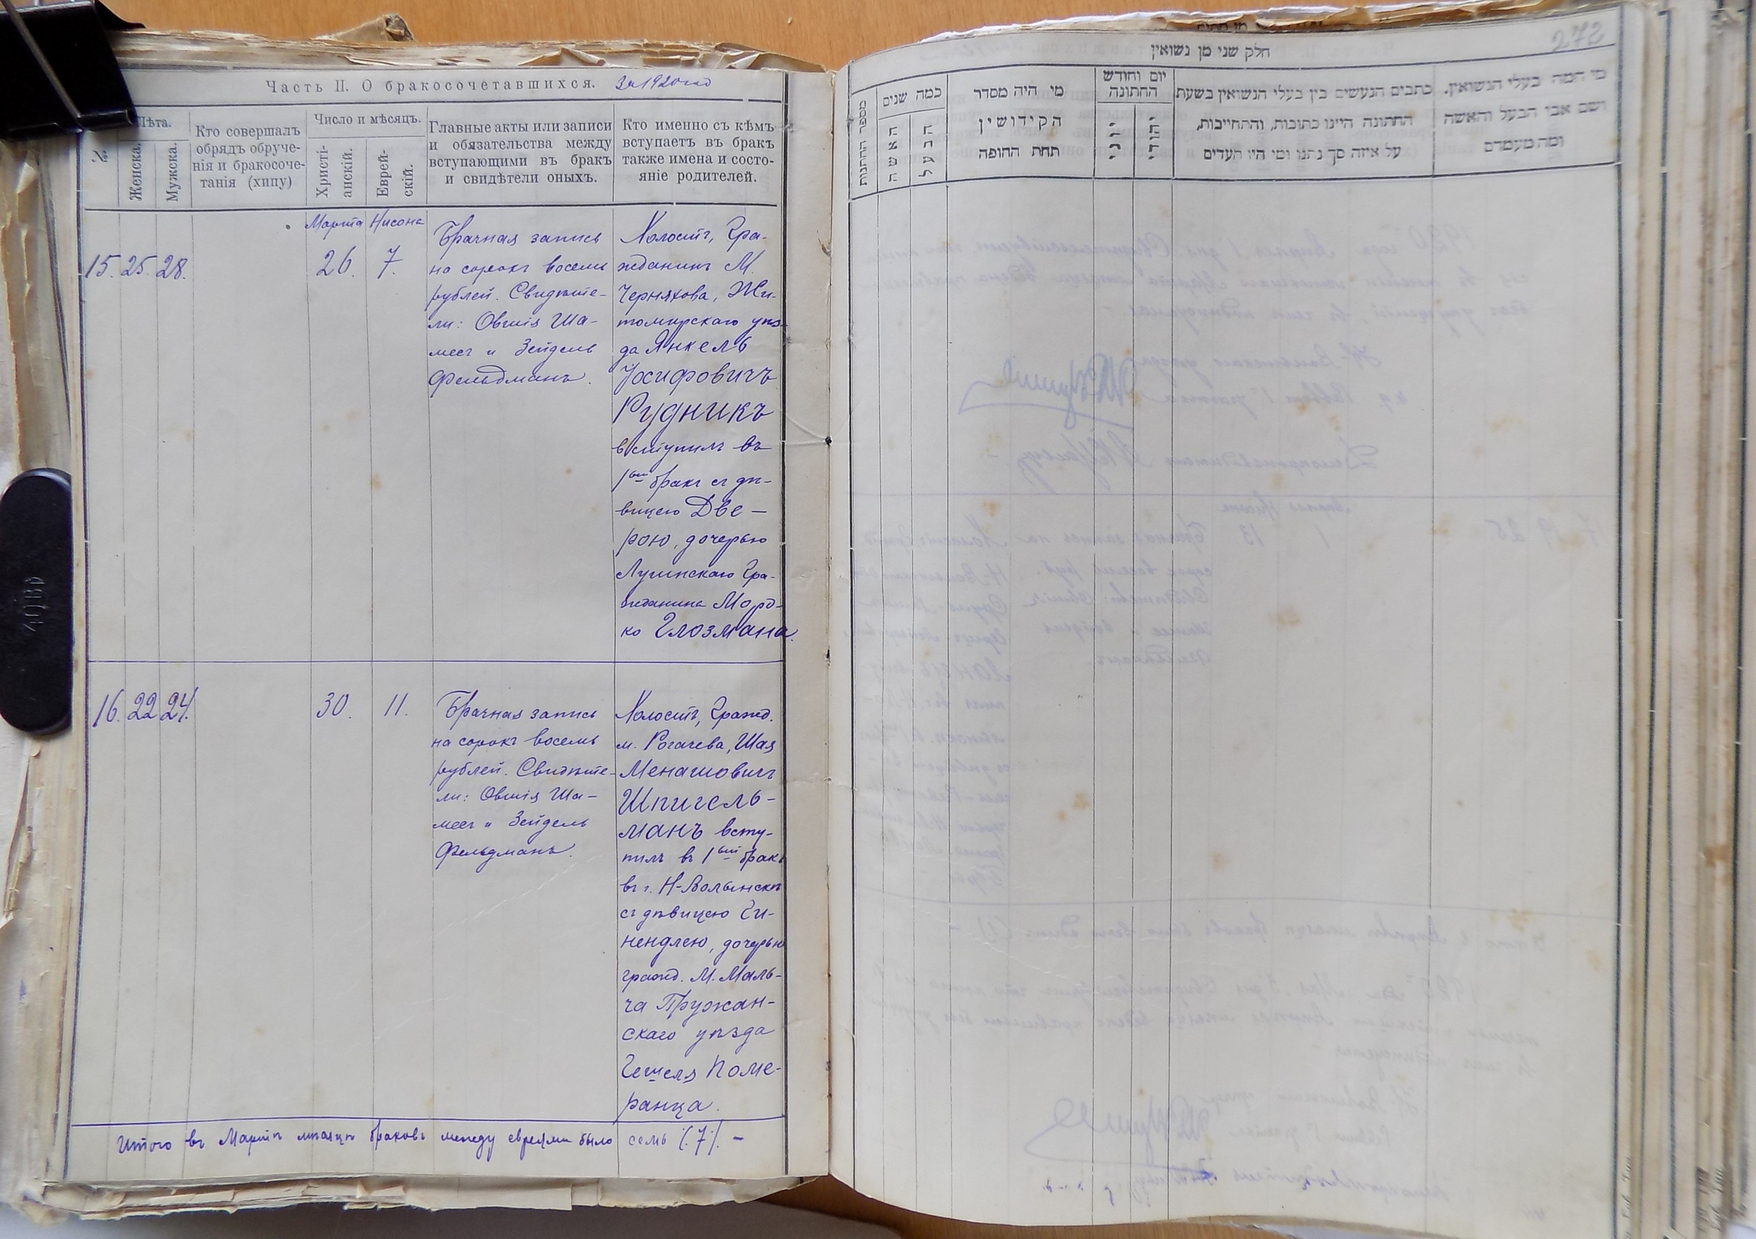 Часть II. О бракосочетавшихся. За 1920 год
№
Лѣта.
Женска.
Мужска.
Кто совершалъ
обрядъ обруче-
нія и бракосоче-
танія (хипу)
Число и мѣсяцъ.
Христі-
анскій.
Еврей-
скій.
Главные акты или записи
и обязательства между
вступающими въ бракъ
и свидѣтели оныхъ.
Кто именно съ кѣмъ
вступаетъ въ бракъ
также имена и состо-
яніе родителей.
Марта Нисона
15. 25. 28.
26. 7.
Брачная запись
на сорокъ восемь
рублей. Свидѣте-
ли: Овшія Ша-
месъ и Зейдель
Фельдманъ.
Холостъ, Гра-
жданинъ М.
Черняхова, Жи-
томирскаго уѣз-
да Янкель
Іосифовичъ
Рудникъ
вступилъ въ
1ый бракъ съ дѣ-
вицею Две-
рою, дочерью
Лугинскаго Гра-
жданина Морд-
ко Глозмана.
16. 22 24.
30. 11.
Брачная запись
на сорокъ восемь
рублей. Свидѣте-
ли: Овшія Ша-
месъ и Зейдель
Фельдманъ.
Холостъ, Гражд.
м. Рогачева, Шая
Менашовичъ
Шпигель-
манъ всту-
пилъ въ 1ый бракъ
въ г. Н-Волынскѣ
съ дѣвицею Ги-
нендлею, дочерью
гражд. М. Маль-
ча Пружан-
скаго уѣзда
Гешеля Поме-
ранца.
Итого въ Мартѣ мѣсяцѣ браковъ между евреями было семь (7). —
272
חלק שני מן נשואין
מספר החתונות
כמה שנים
האשה
הבעל
מי היה מסדר
הקידושין
תחת החופה
יום וחודש
החתונה
יוני
יהודי
כתבים הנעשים בין בעלי הנשואין בשעת
החתונה היינו כתובות, והתחייבות,
על איזה סך נתנו ומי היו העדים
מי המה בעלי הנשואין.
ושם אבי הבעל והאשה
ומה מעמדם